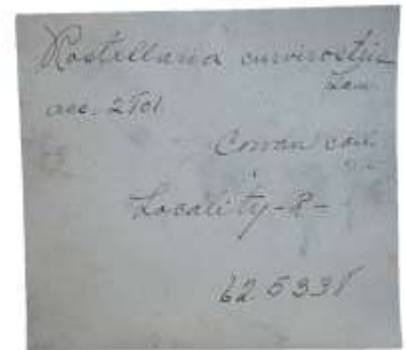 Rostellaria curvirostris
Lam.
acc. 2701
Cowan coll.
Locality-?-
625338